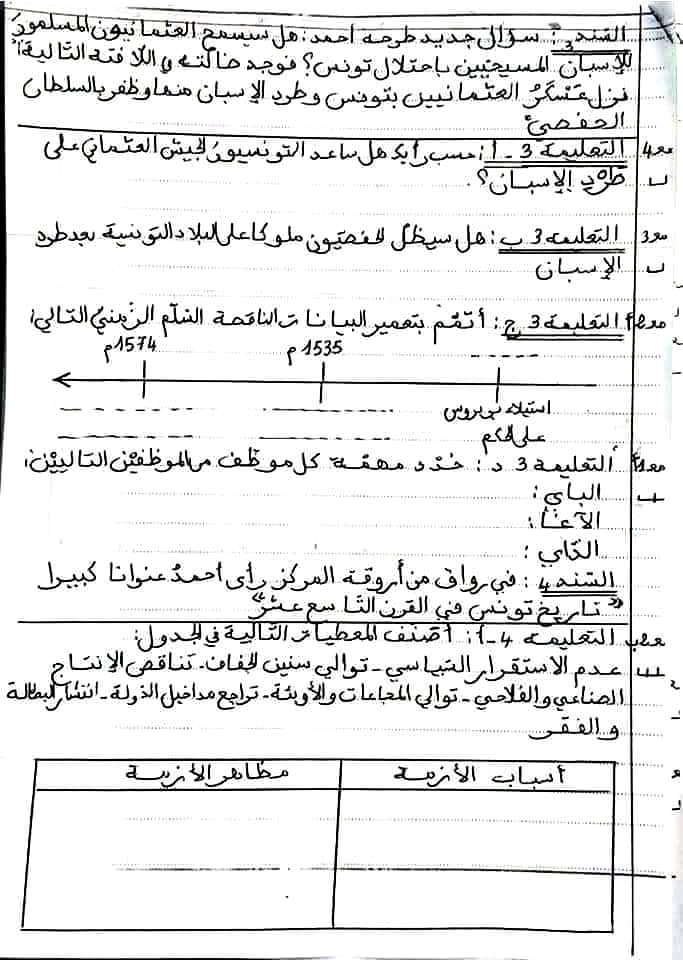 السّند 3: سؤال جديد طرحه أحمد: هل سيسمح العثمانيون المسلمون
للإسبان المسيحيين باحتلال تونس؟ فوجد ضالته في اللافتة التالية:
نزل عَسْكَرُ العثمانيين بتونس وطرد الإسبان منها وظفر بالسلطان
الحفصيّ
مع4 التعليمة 3-أ: حسب رأيك هل ساعد التونسيون الجيش العثماني على
طرْدِ الإسبان؟.
مع3 التعليمة 3 ب: هل سيظلّ الحفصيّون ملوكا على البلاد التونسية بعد طرد
الإسبان
مع2 التعليمة 3 ج: أتمّم بتعمير البيانات الناقصة السّلّم الزّمنيّ التالي:
1535م 1574م
استيلاء بربروس
على الحكم
مع1 التعليمة 3 د: حدّد مهمّة كلّ موظف من الموظفيْن التاليين:
الباي:
الآغا:
الدّاي:
السّند 4: في رواق من أروقة المركز رأى أحمدُ عنوانا كبيرا
"تاريخ تونس في القرن التاسع عشر"
التعليمة 4-أ: أصنّف المعطيات التالية في الجدول:
عدم الاستقرار السّياسي - توالي سنين الجفاف - تناقص الإنتاج
الصناعي والفلاحي - توالي المجاعات والأوبئة - تراجع مداخيل الدولة - انتشار البطالة
والفقر
أسباب الأزمة مظاهر الأزمة